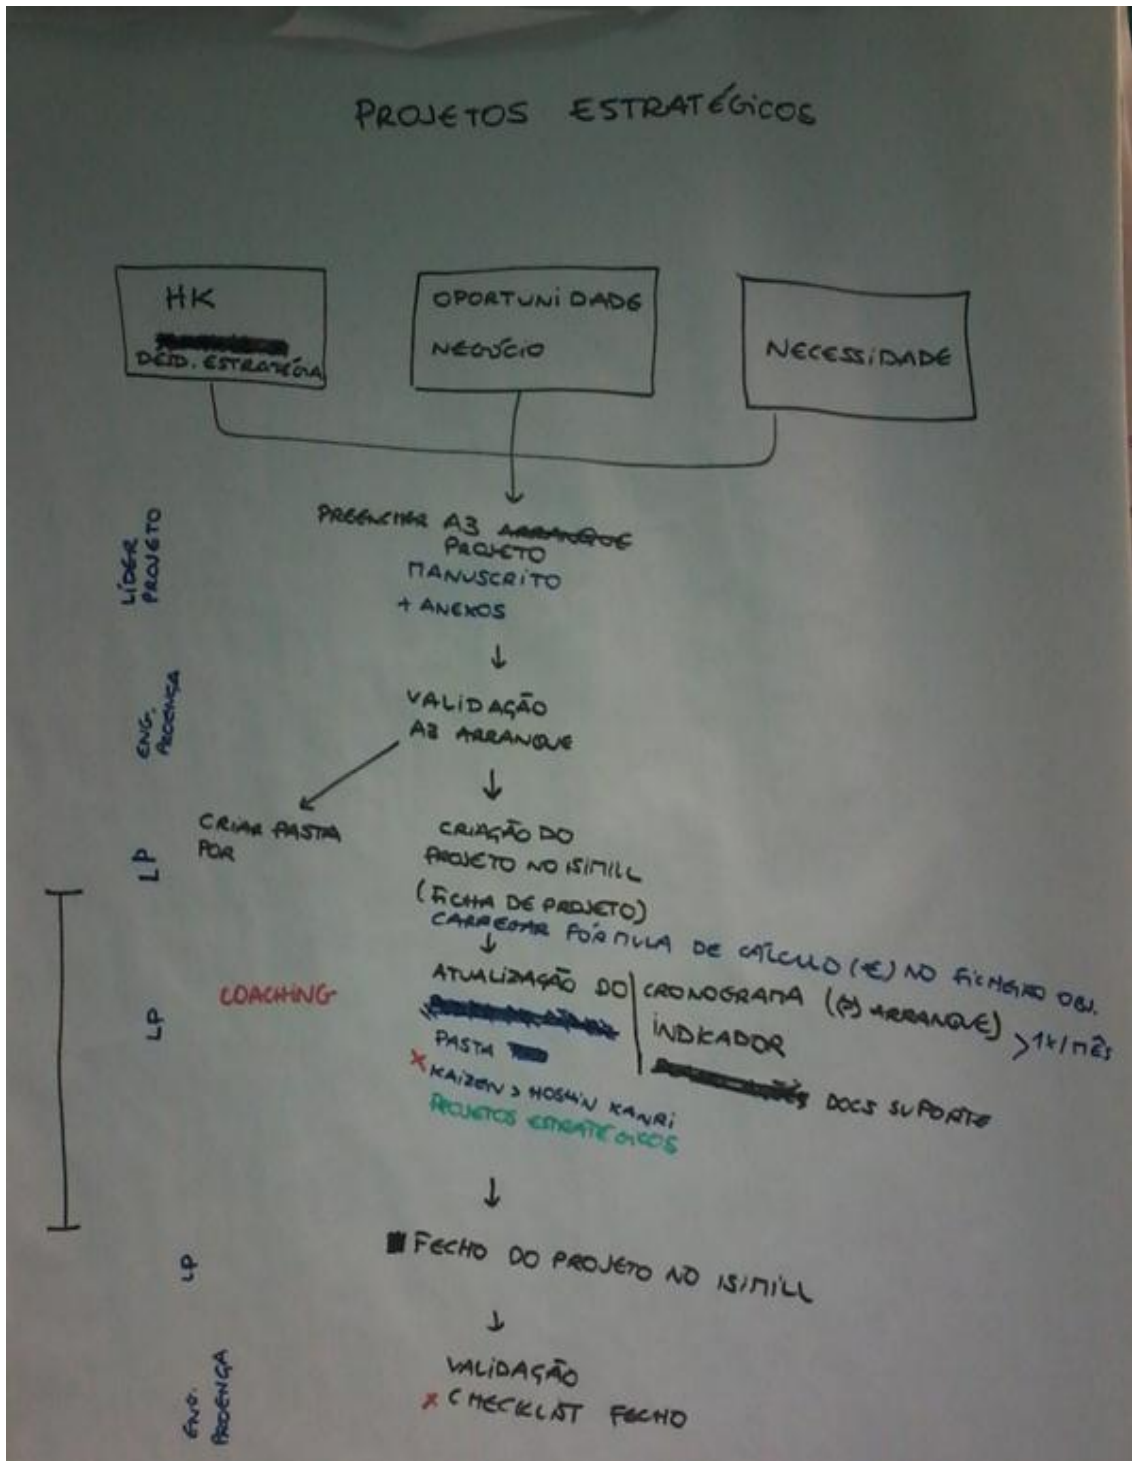 PROJETOS ESTRATÉGICOS
HK
DESD. ESTRATÉGIA
OPORTUNIDADE
NEGÓCIO
NECESSIDADE
LÍDER
PROJETO
PREENCHER A3 ARRANQUE
PROJETO
MANUSCRITO
+ ANEXOS
ENG.
PROENÇA
VALIDAÇÃO
A3 ARRANQUE
LP
CRIAR PASTA
POR
CRIAÇÃO DO
PROJETO NO ISIMILL
(FICHA DE PROJETO)
CARREGAR FÓRMULA DE CÁLCULO (€) NO FICHEIRO OBJ.
LP
COACHING
ATUALIZAÇÃO DO CRONOGRAMA (ARRANQUE) > 1x/MÊS
INDICADOR
PASTA
DOCS SUPORTE
x KAIZEN > HOSHIN KANRI
PROJETOS ESTRATÉGICOS
LP
FECHO DO PROJETO NO ISIMILL
ENG.
PROENÇA
VALIDAÇÃO
x CHECKLIST FECHO